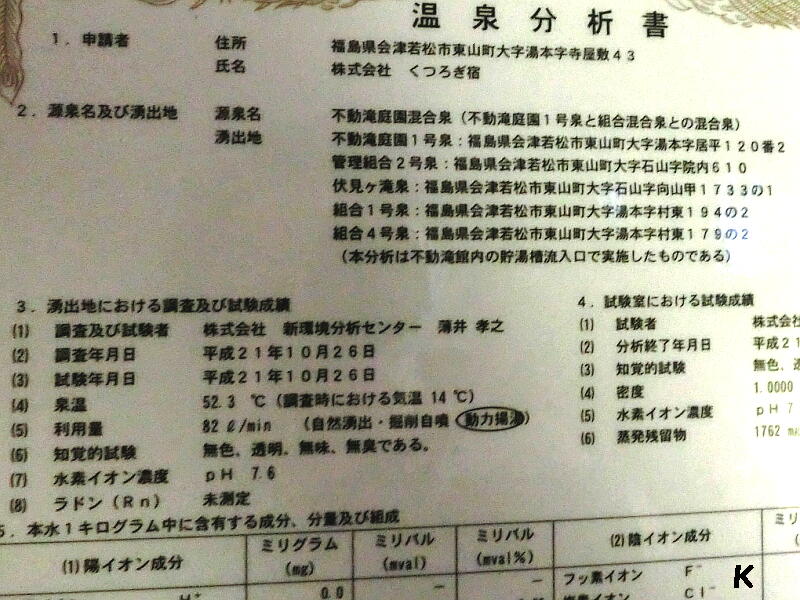 温泉分析書
1．申請者　住所　福島県会津若松市東山町大字湯本字寺屋敷43
氏名　株式会社　くつろぎ宿
2．源泉名及び湧出地　源泉名　不動滝庭園混合泉（不動滝庭園1号泉と組合混合泉との混合泉）
湧出地　不動滝庭園1号泉：福島県会津若松市東山町大字湯本字居平120番2
管理組合2号泉：福島県会津若松市東山町大字石山字院内610
伏見ヶ滝泉：福島県会津若松市東山町大字石山字向山甲1733の1
組合1号泉：福島県会津若松市東山町大字湯本字村東194の2
組合4号泉：福島県会津若松市東山町大字湯本字村東179の2
（本分析は不動滝館内の貯湯槽流入口で実施したものである）
3．湧出地における調査及び試験成績
(1)　調査及び試験者　株式会社　新環境分析センター　薄井 孝之
(2)　調査年月日　平成21年10月26日
(3)　試験年月日　平成21年10月26日
(4)　泉温　52.3 ℃（調査時における気温 14 ℃）
(5)　利用量　82 ℓ/min　（自然湧出・掘削自噴 動力揚湯）
(6)　知覚的試験　無色、透明、無味、無臭である。
(7)　水素イオン濃度　pH 7.6
(8)　ラドン（Rn）　未測定
4．試験室における試験成績
(1)　試験者　株式会社
(2)　分析終了年月日　平成21
(3)　知覚的試験　無色、
(4)　密度　1.0000
(5)　水素イオン濃度　pH 7
(6)　蒸発残留物　1762
5．本水1キログラム中に含有する成分、分量及び組成
(1)陽イオン成分　ミリグラム (mg)　ミリバル (mval)　ミリバル (mval%)　(2)陰イオン成分　ミリ
H⁺　0.0　－　－　フッ素イオン　F⁻
Cl⁻
K